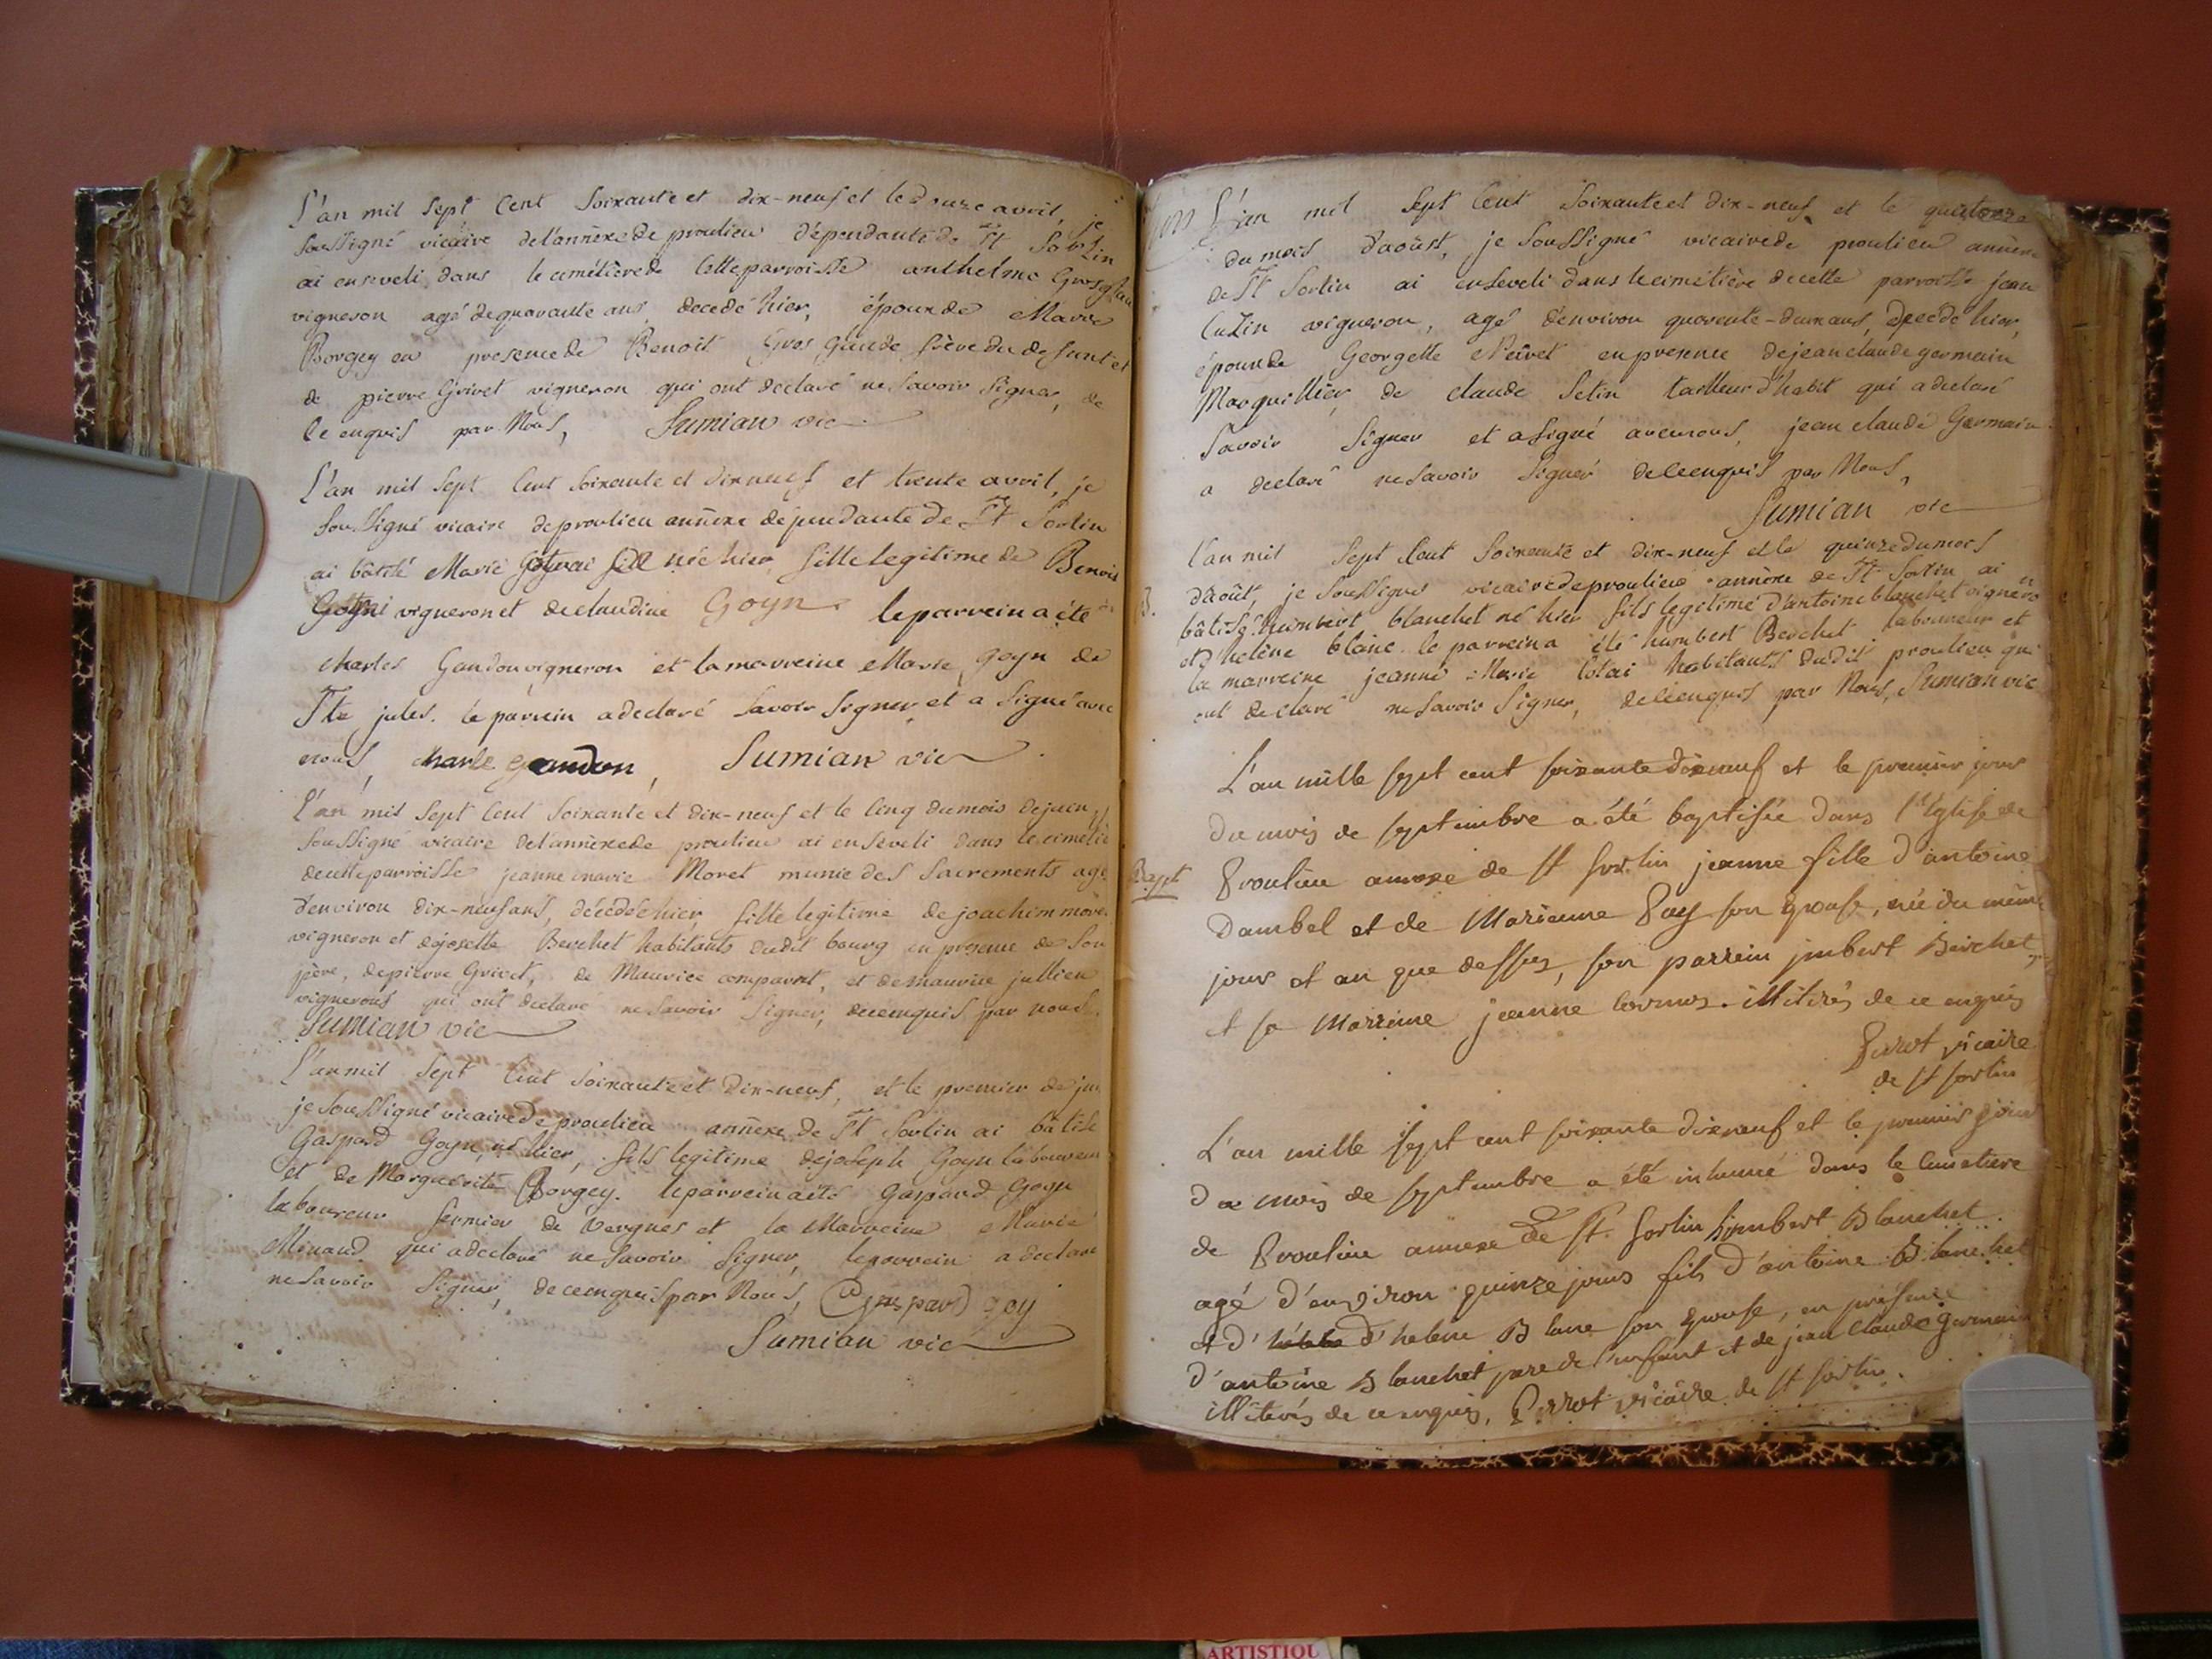 L'an mil Sept Cent Soixante et dix-neuf et le douze avril, je
Soussigné vicaire de l'annèxe de proulieu dépendante de St Sorlin
ai enseveli dans le cimétière de Cette parroisse anthelme
vigneron agé de quarante ans, decedé hier, époux de Marie
Borgey en presence de Benoit Gros gaude frère du defunt et
de pierre Grivet vigneron qui ont declaré ne Savoir Signer, de
Ce enquis par Nous, Sumian vic
L'an mil Sept Cent Soixante et dix neuf et trente avril, je
Soussigné vicaire de proulieu annèxe dépendante de St Sorlin
ai bâtisé Marie née hier fille legitime de Benoit
vigneron et de claudine Goyn le parrein a été
charles Gandon vigneron et la marreine Marie goyn de
Ste jules. le parrein a declaré Savoir Signer et a Signé avec
nous, charle gandon, Sumian vic
L'an mil Sept Cent Soixante et dix-neuf et le Cinq du mois de juin, j
Soussigné vicaire de l'annèxe de proulieu ai enseveli dans le cimetiè
de cette parroisse jeanne marie Moret munie des Sacrements agé
d'environ dix-neuf ans, décédée hier, fille legitime de joachim more
vigneron et de josette Berchet habitants dudit bourg en presence de Son
père, de pierre Grivet, de Maurice comparet, et de maurice jullien
vignerons qui ont declaré ne Savoir Signer, de ce enquis par nous.
Sumian vic
L'an mil Sept Cent Soixante et Dix-neuf, et le premier de
je Soussigné vicaire de proulieu annèxe de St Sorlin ai bâtisé
Gaspard Goyn, né hier, fils legitime de joseph Goyn laboureur
et de Marguerite Borgey. le parrein a été Gaspard Goyn
laboureur fermier de Vergnes et la Marreine Marie
Minaud qui a declaré ne Savoir Signer, le parrein a declaré
ne Savoir Signer, de ce enquis par Nous, Gaspard goy
Sumian vic
L'an mil Sept Cent Soixante et dix-neuf et le quatorze
du mois d'aoûst, je Soussigné vicaire de proulieu annèxe
de St Sorlin ai enseveli dans le cimétière de cette parroisse jean
Cuzin vigneron, agé d'environ quarente-deux ans, Decedé hier,
époux de Georgette en presence de jean claude germain
Marguillier de claude Setin tailleur d'habit qui a declaré
Savoir Signer et a Signé avec nous, jean claude Germain
a declaré ne Savoir Signer de ce enquis par Nous,
Sumian vic
L'an mil Sept Cent Soixante et dix-neuf et le quinze du mois
d'août, je Soussigné vicaire de proulieu annèxe de St Sorlin ai
B.
bâtisé humbert blanchet né hier fils legitime d'antoine blanchet vigneron
et d'helène blanc. le parrein a été humbert Berchet laboureur et
la marreine jeanne Marie habitants dudit proulieu qui
ont declaré ne Savoir Signer, de ce enquis par Nous, Sumian vic
L'an mille sept cent soixante dixneuf et le premier jour
du mois de septembre a été baptisée dans l'Église de
Bapt
Proulieu annexe de St sorlin jeanne fille d'antoine
Dambel et de Marianne Pay son epouse, née du même
jour et an que dessus, son parrein jmbert Berchet,
et sa Marreine jeanne illiterés de ce enquis
Perrot vicaire
de St sorlin
L'an mille sept cent soixante dixneuf et le premier jour
du mois de septembre a été inhumé dans le Cimetiere
de Proulieu annexe de St. sorlin himbert Blanchet
agé d'environ quinze jours fils d'antoine Blanchet
et d' d'helene Blanc son epouse, en présence
d'antoine Blanchet pere de l'enfant et de jean claude germain
illiterés de ce enquis, Perrot vicaire de St sorlin.
ARTISTIQU